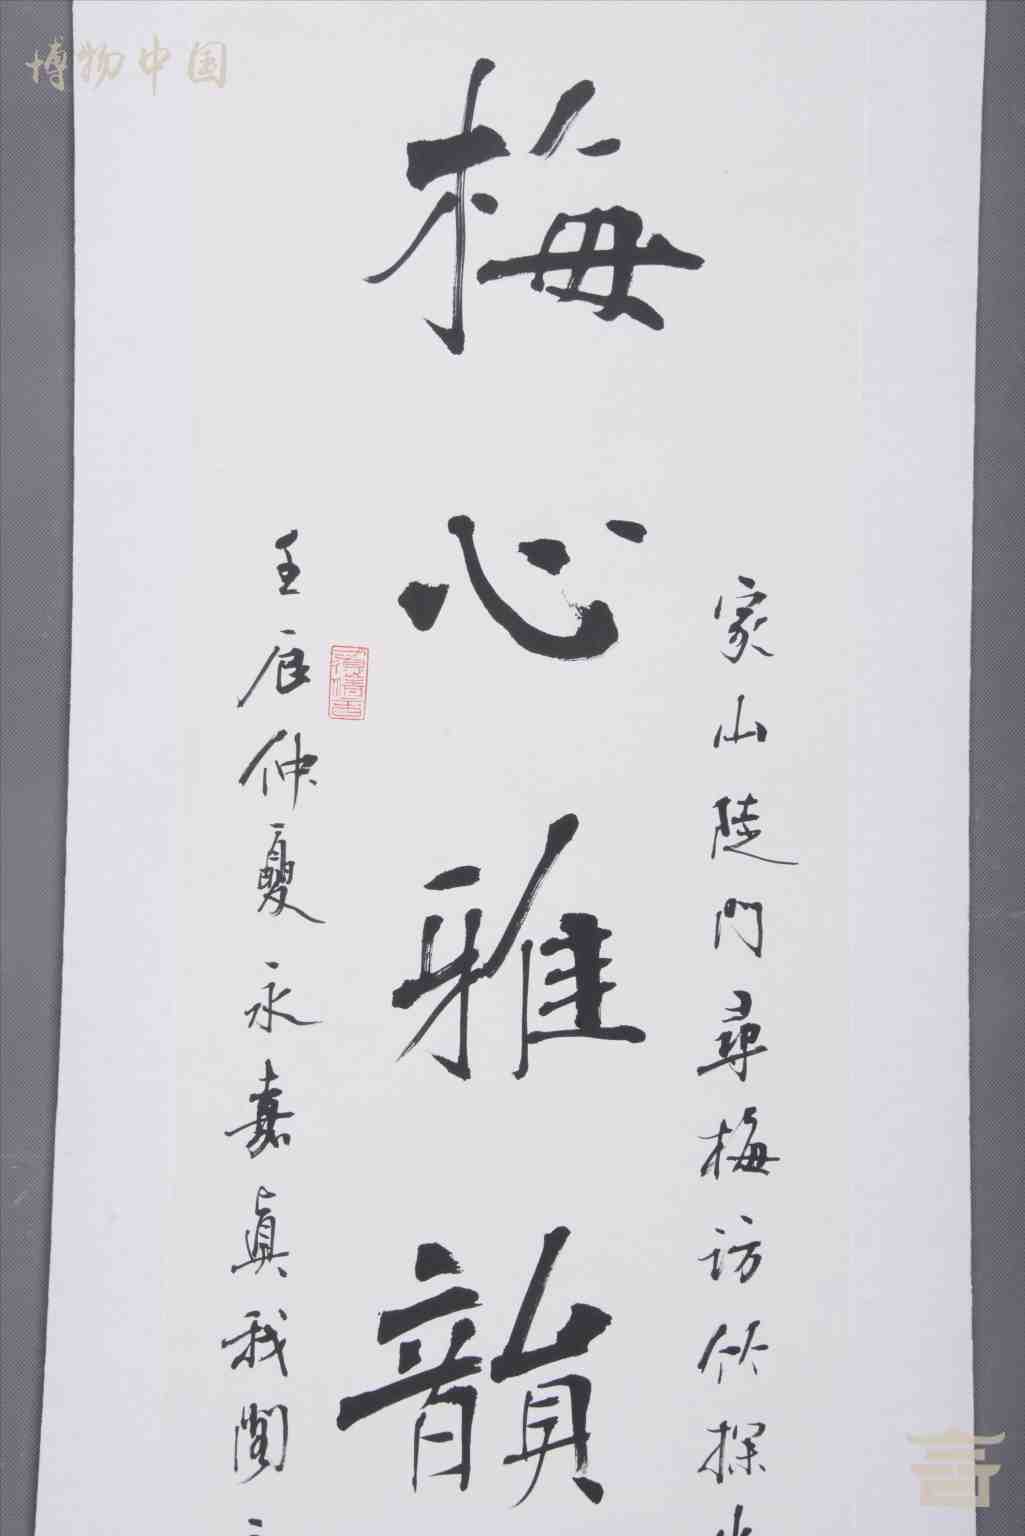 博物中国
梅心雅韻
家山陡門尋梅访竹探
壬辰仲夏永嘉真我閣